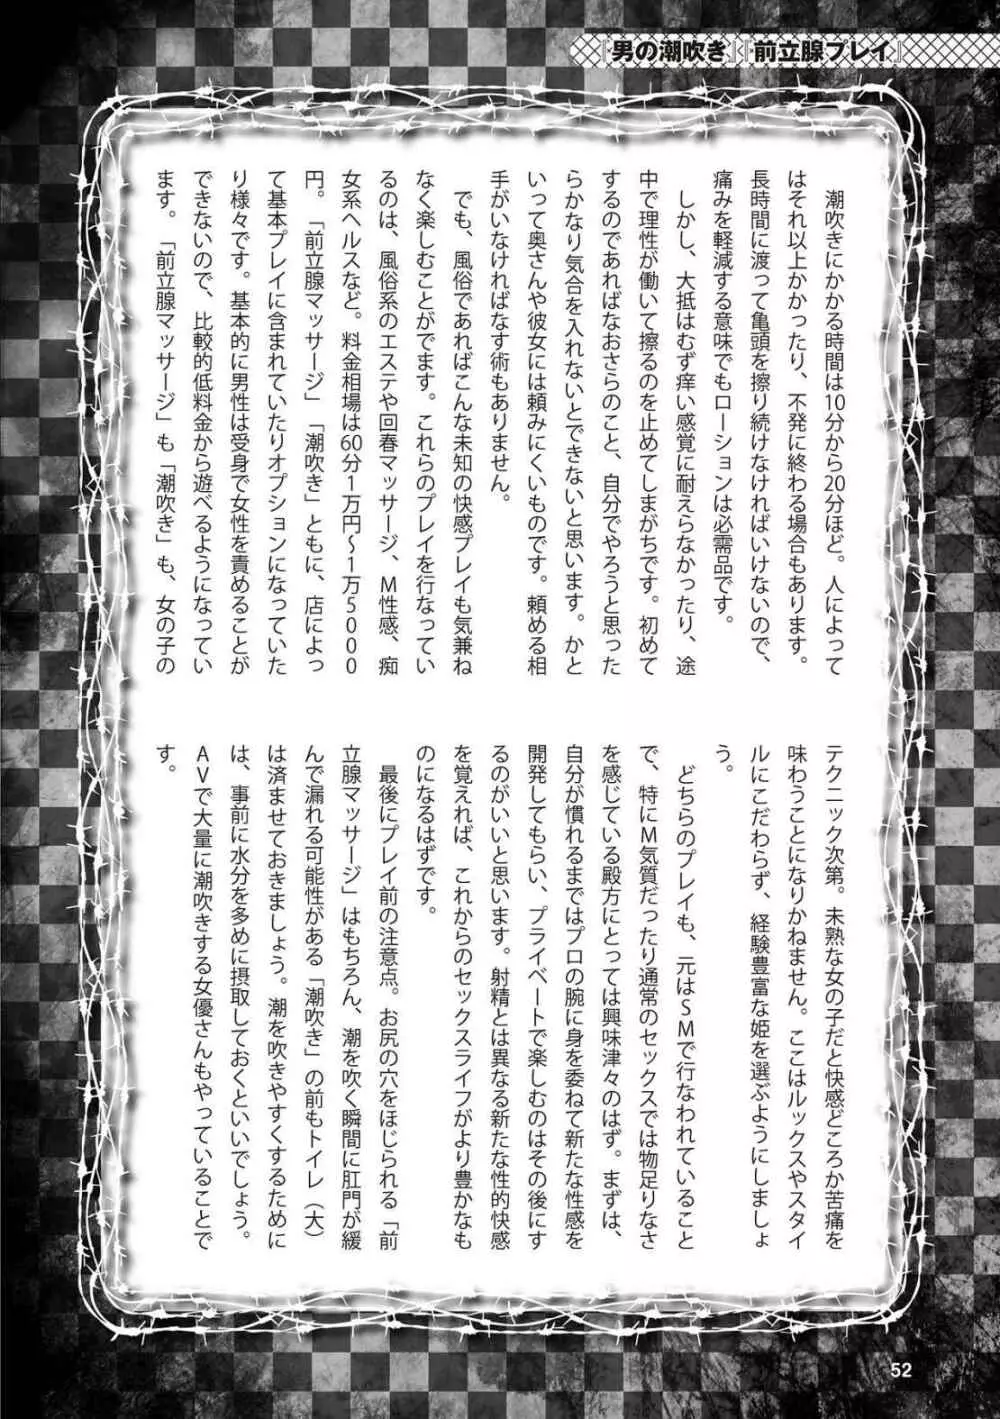 『男の潮吹き』『前立腺プレイ』
　潮吹きにかかる時間は10分から20分ほど。人によって
はそれ以上かかったり、不発に終わる場合もあります。
長時間に渡って亀頭を擦り続けなければいけないので、
痛みを軽減する意味でもローションは必需品です。
　しかし、大抵はむず痒い感覚に耐えらなかったり、途
中で理性が働いて擦るのを止めてしまがちです。初めて
するのであればなおさらのこと、自分でやろうと思った
らかなり気合を入れないとできないと思います。かと
いって奥さんや彼女には頼みにくいものです。頼める相
手がいなければなす術もありません。
　でも、風俗であればこんな未知の快感プレイも気兼ね
なく楽しむことがでます。これらのプレイを行なってい
るのは、風俗系のエステや回春マッサージ、M性感、痴
女系ヘルスなど。料金相場は60分1万円〜1万5000
円。「前立腺マッサージ」「潮吹き」ともに、店によっ
て基本プレイに含まれていたりオプションになっていた
り様々です。基本的に男性は受身で女性を責めることが
できないので、比較的低料金から遊べるようになってい
ます。「前立腺マッサージ」も「潮吹き」も、女の子の
テクニック次第。未熟な女の子だと快感どころか苦痛を
味わうことになりかねません。ここはルックスやスタイ
ルにこだわらず、経験豊富な姫を選ぶようにしましょ
う。
　どちらのプレイも、元はSMで行なわれていること
で、特にM気質だったり通常のセックスでは物足りなさ
を感じている殿方にとっては興味津々のはず。まずは、
自分が慣れるまではプロの腕に身を委ねて新たな性感を
開発してもらい、プライベートで楽しむのはその後にす
るのがいいと思います。射精とは異なる新たな性的快感
を覚えれば、これからのセックスライフがより豊かなも
のになるはずです。
　最後にプレイ前の注意点。お尻の穴をほじられる「前
立腺マッサージ」はもちろん、潮を吹く瞬間に肛門が緩
んで漏れる可能性がある「潮吹き」の前もトイレ（大）
は済ませておきましょう。潮を吹きやすくするために
は、事前に水分を多めに摂取しておくといいでしょう。
AVで大量に潮吹きする女優さんもやっていることで
す。
52